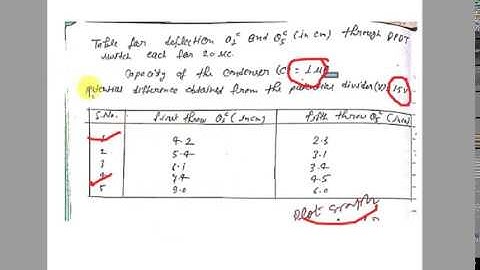 Table for deflection θ₁ᶜ and θ₅ᶜ (in cm) through DPDT
switch each for 20 sec.
Capacity of the condenser (C) = 1 μF
potential difference obtained from the potential divider (V) = 15V
S.No. first throw θ₁ᶜ (in cm) fifth throw θ₅ᶜ (in cm)
1 4.2 2.3
2 5.4 3.1
3 6.1 3.4
4 7.4 4.5
5 9.0 6.0
Plot Graph